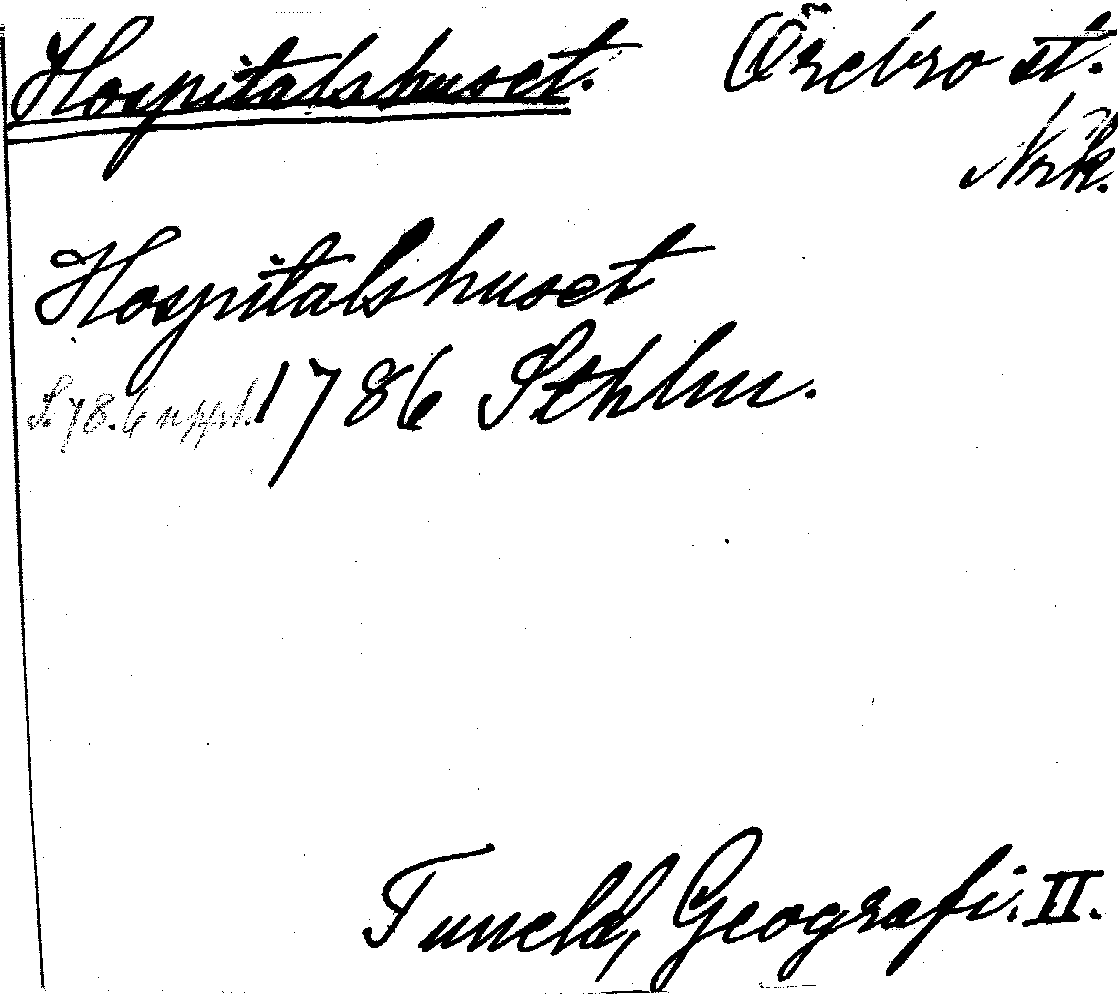 Hospitalshuset. Örebro st.
Nrk.
Hospitalshuset
S. 78. 6 uppl. 1786 Sthlm.
Tuneld, Geografi. II.